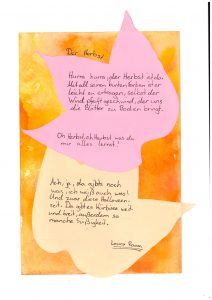 Der Herbst
Hurra hurra, der Herbst ist da.
Mit all seinen bunten Farben ist er
leicht zu ertragen, selbst der
Wind pfeift geschwind, der uns
die Blätter zu Boden bringt.
Oh Herbst, oh Herbst was du
mir alles lernst!
Ach, ja, da gibts noch
was, ich weiß auch was!
Und zwar diese Halloween-
zeit. Da gibt es Kürbisse weit
und breit, außerdem so
manche Süßigkeit.
Laura